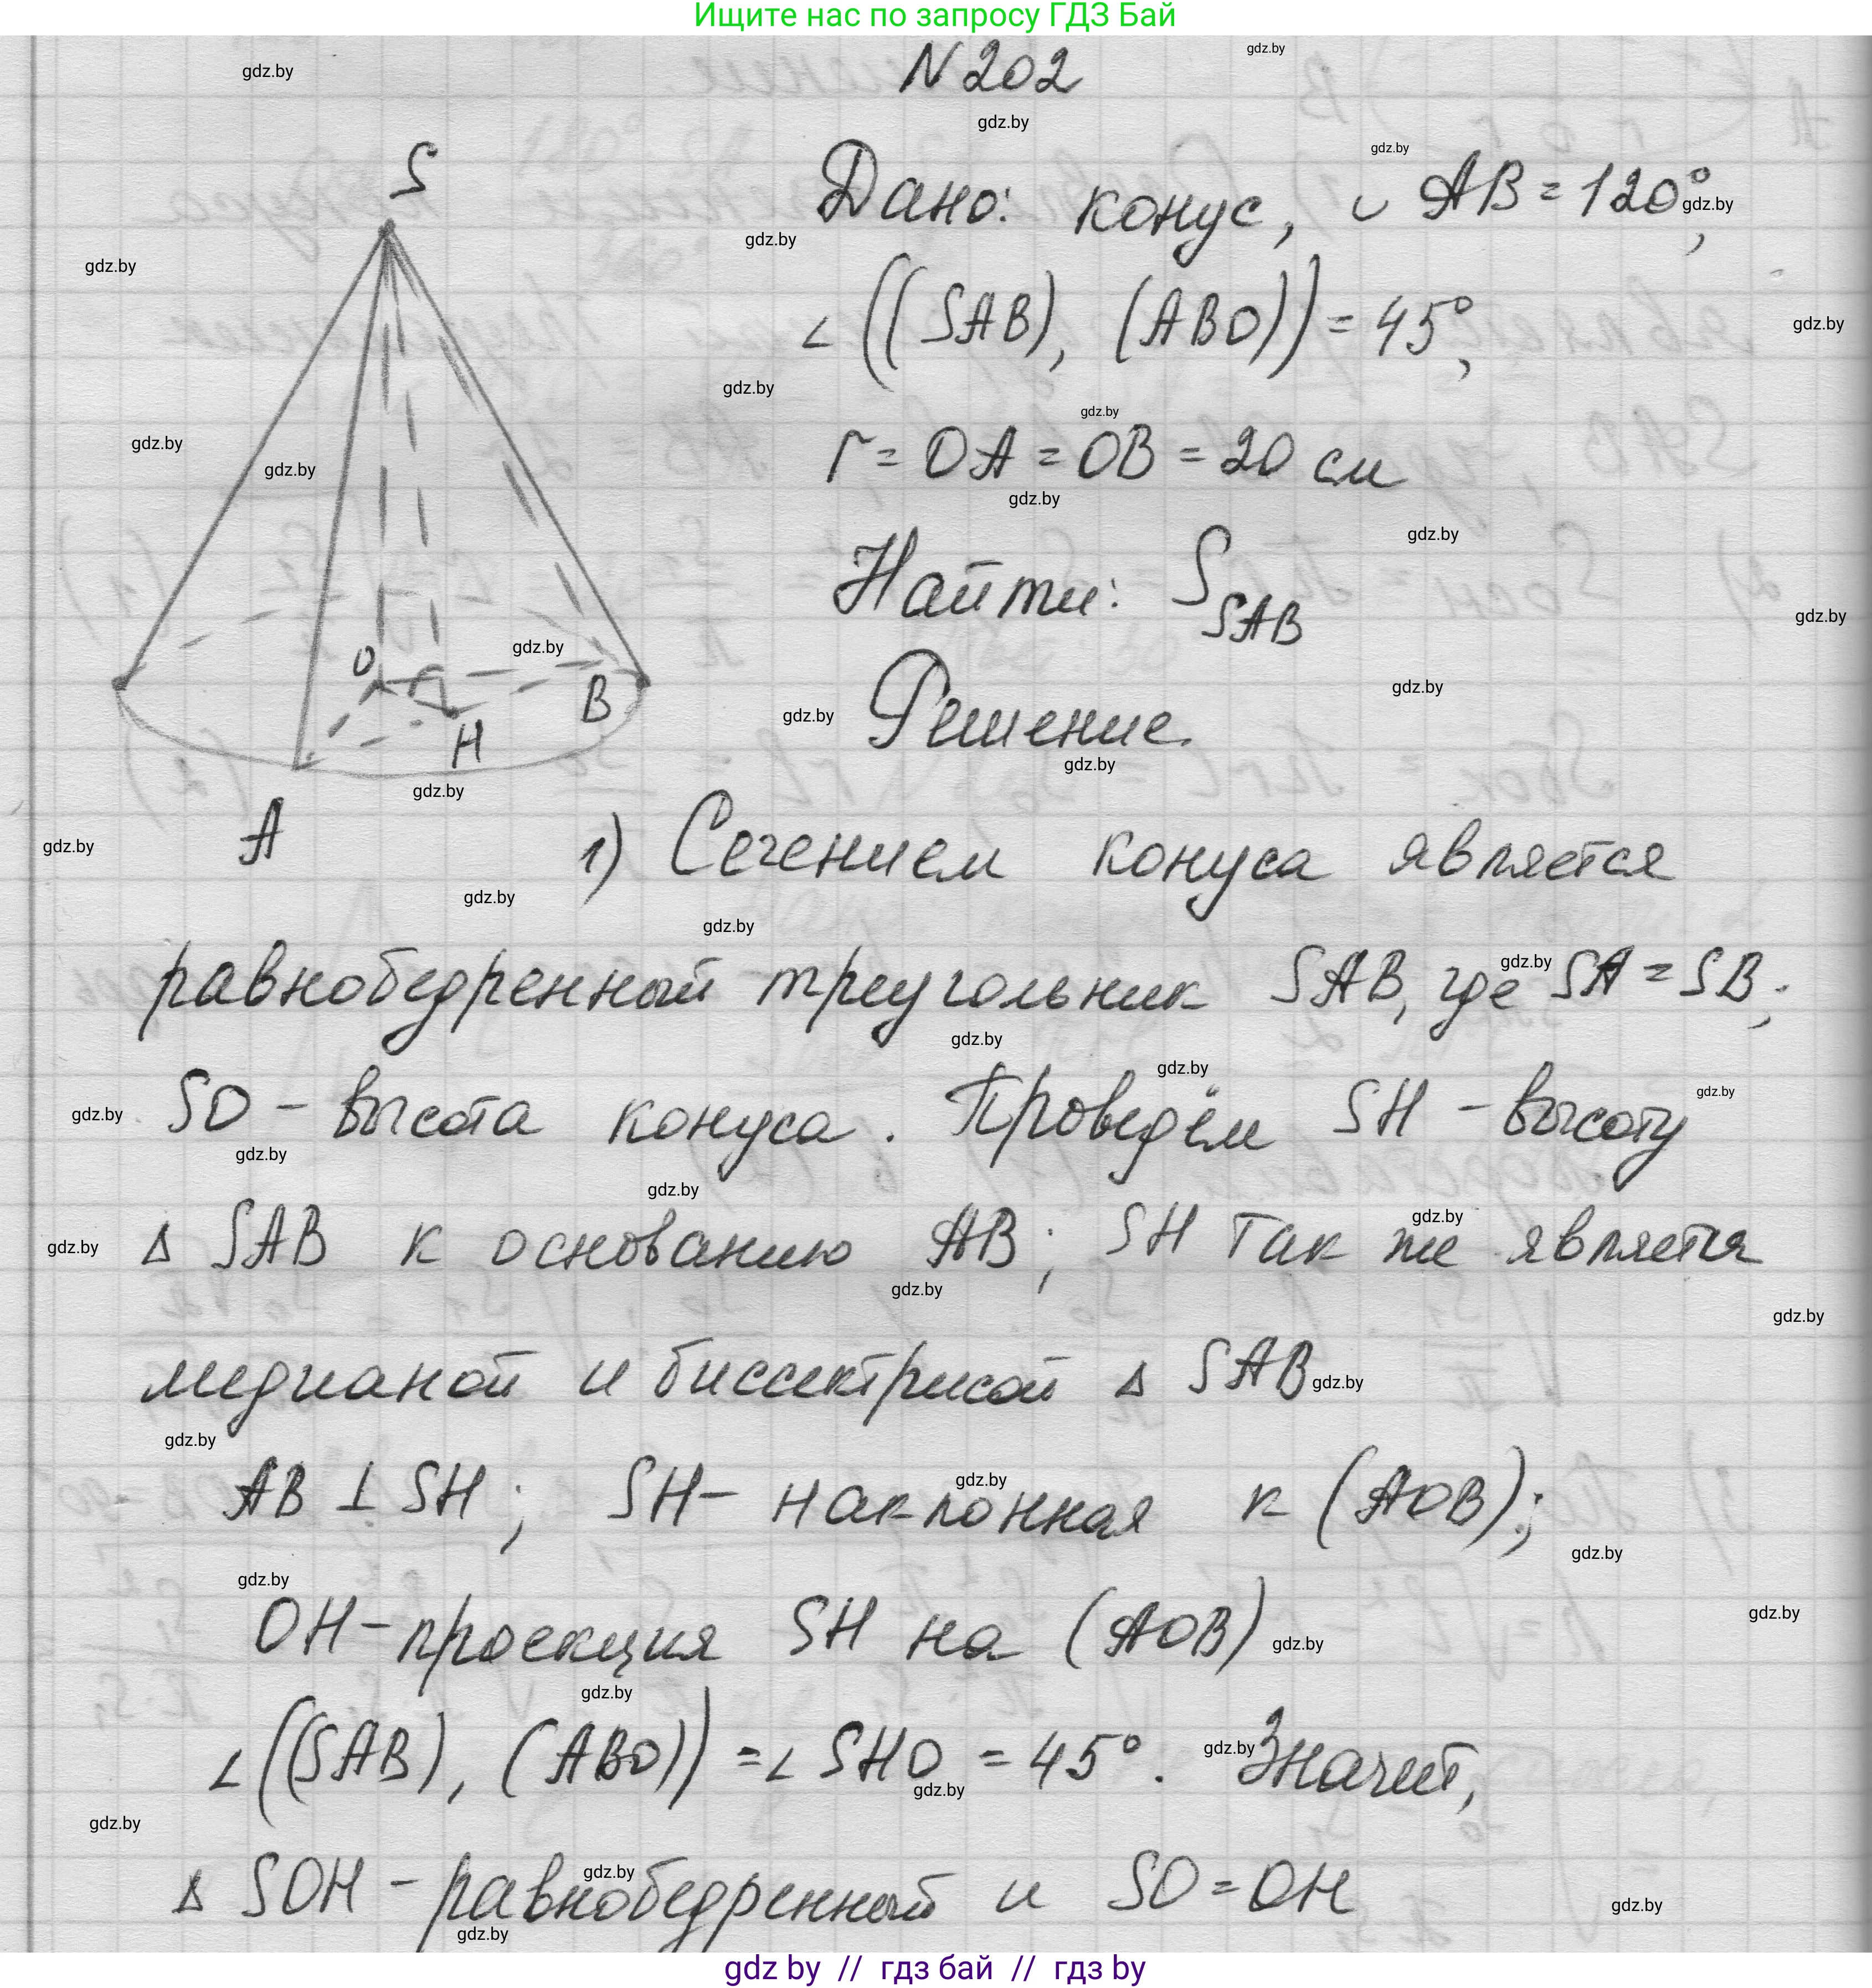 Ищите нас по запросу ГДЗ Бай
N 202
Дано: конус, ◡ AB = 120°,
∠ ((SAB), (ABO)) = 45°,
r = OA = OB = 20 см
Найти: S_SAB
Решение.
S
O
B
H
A
1) Сечением конуса является
равнобедренный треугольник SAB, где SA = SB;
SO - высота конуса. Проведём SH - высоту
Δ SAB к основанию AB; SH так же является
медианой и биссектрисой Δ SAB
AB ⊥ SH; SH - наклонная к (AOB);
OH - проекция SH на (AOB)
∠ ((SAB), (ABO)) = ∠ SHO = 45°. Значит,
Δ SOH - равнобедренный и SO = OH
gdz.by
gdz by // гдз бай // гдз by